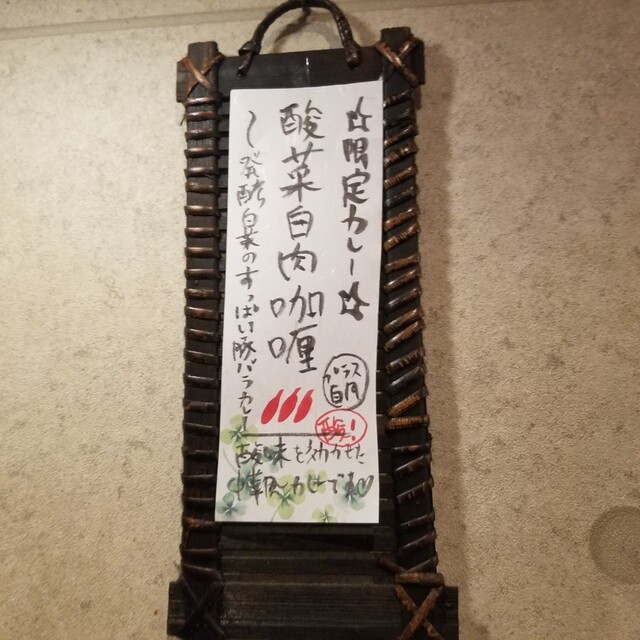 ☆限定カレー☆
酸菜白肉咖喱
〜発酵白菜のすっぱい豚バラカレー〜
プラス
百円
酸味を効かせた